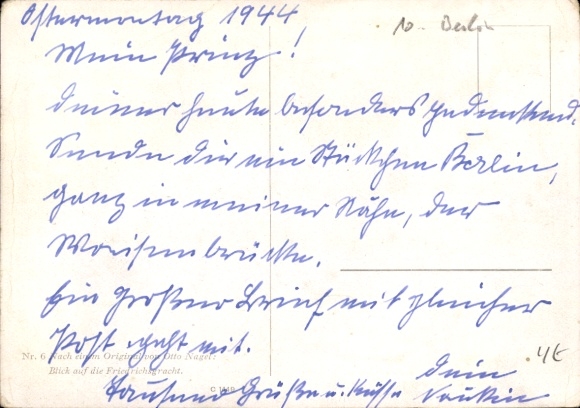 Ostermontag 1944
10. Berlin
Mein Prinz!
deiner heute besonders gedenkend.
Sende dir ein Stückchen Berlin,
ganz in meiner Nähe, der
Waisenbrücke.
Ein großer Brief mit gleicher
Post geht mit.
Nr. 6 Nach einem Original von Otto Nagel:
Blick auf die Friedrichsgracht.
4€
Tausend Grüße u. Küsse dein